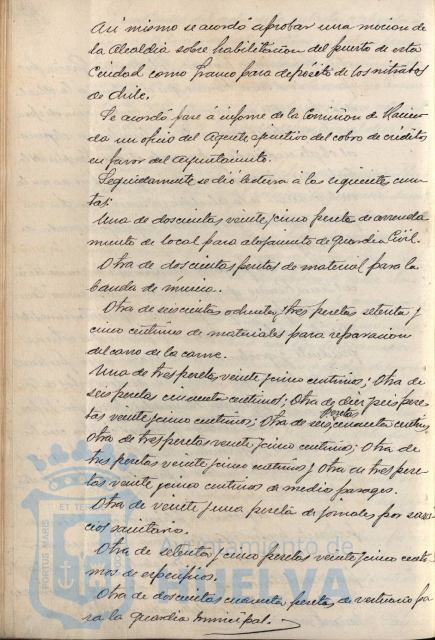 Asi mismo se acordó aprobar una mocion de
la Alcaldia sobre habilitacion del puerto de esta
Ciudad como franco para depósito de los nitratos
de Chile.
Se acordó pase á informe de la Comision de Hacien-
da un oficio del Agente ejecutivo del cobro de créditos
en favor del Ayuntamiento.
Seguidamente se dió lectura á las siguientes cuen-
tas:
Una de doscientas veinte y cinco pesetas de arrenda
miento de local para alojamiento de Guardia Civil.
Otra de doscientas pesetas de material para la
banda de musica.
Otra de seiscientas ochenta y tres pesetas setenta y
cinco centimos de materiales para reparacion
del carro de la carne.
Una de tres pesetas veinte y cinco centimos; Otra de
seis pesetas cincuenta centimos; Otra de diez y seis pese-
tas veinte y cinco centimos; Otra de seis pesetas cincuenta centimos,
Otra de tres pesetas veinte y cinco centimos; Otra de
tres pesetas veinte y cinco centimos y Otra de tres pese-
tas veinte y cinco centimos de medio pasages.
Otra de veinte y una peseta de jornales por servi-
cios sanitario.
Otra de setenta y cinco pesetas veinte y cinco centi-
mos de especificos.
Otra de doscientas cincuenta pesetas de vestuario pa-
ra la guardia municipal.
PORTUS MARIS ET TE
Ayuntamiento de
HUELVA